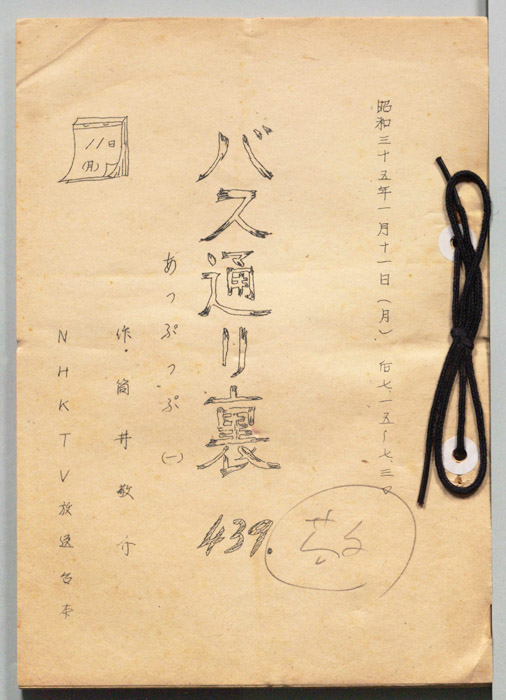 昭和三十五年一月十一日(月) 后七.一五〜七.三〇
バス通り裏
439.
あっぷっぷ(一)
作・筒井敬介
NHKTV放送台本
11日
(月)
敬